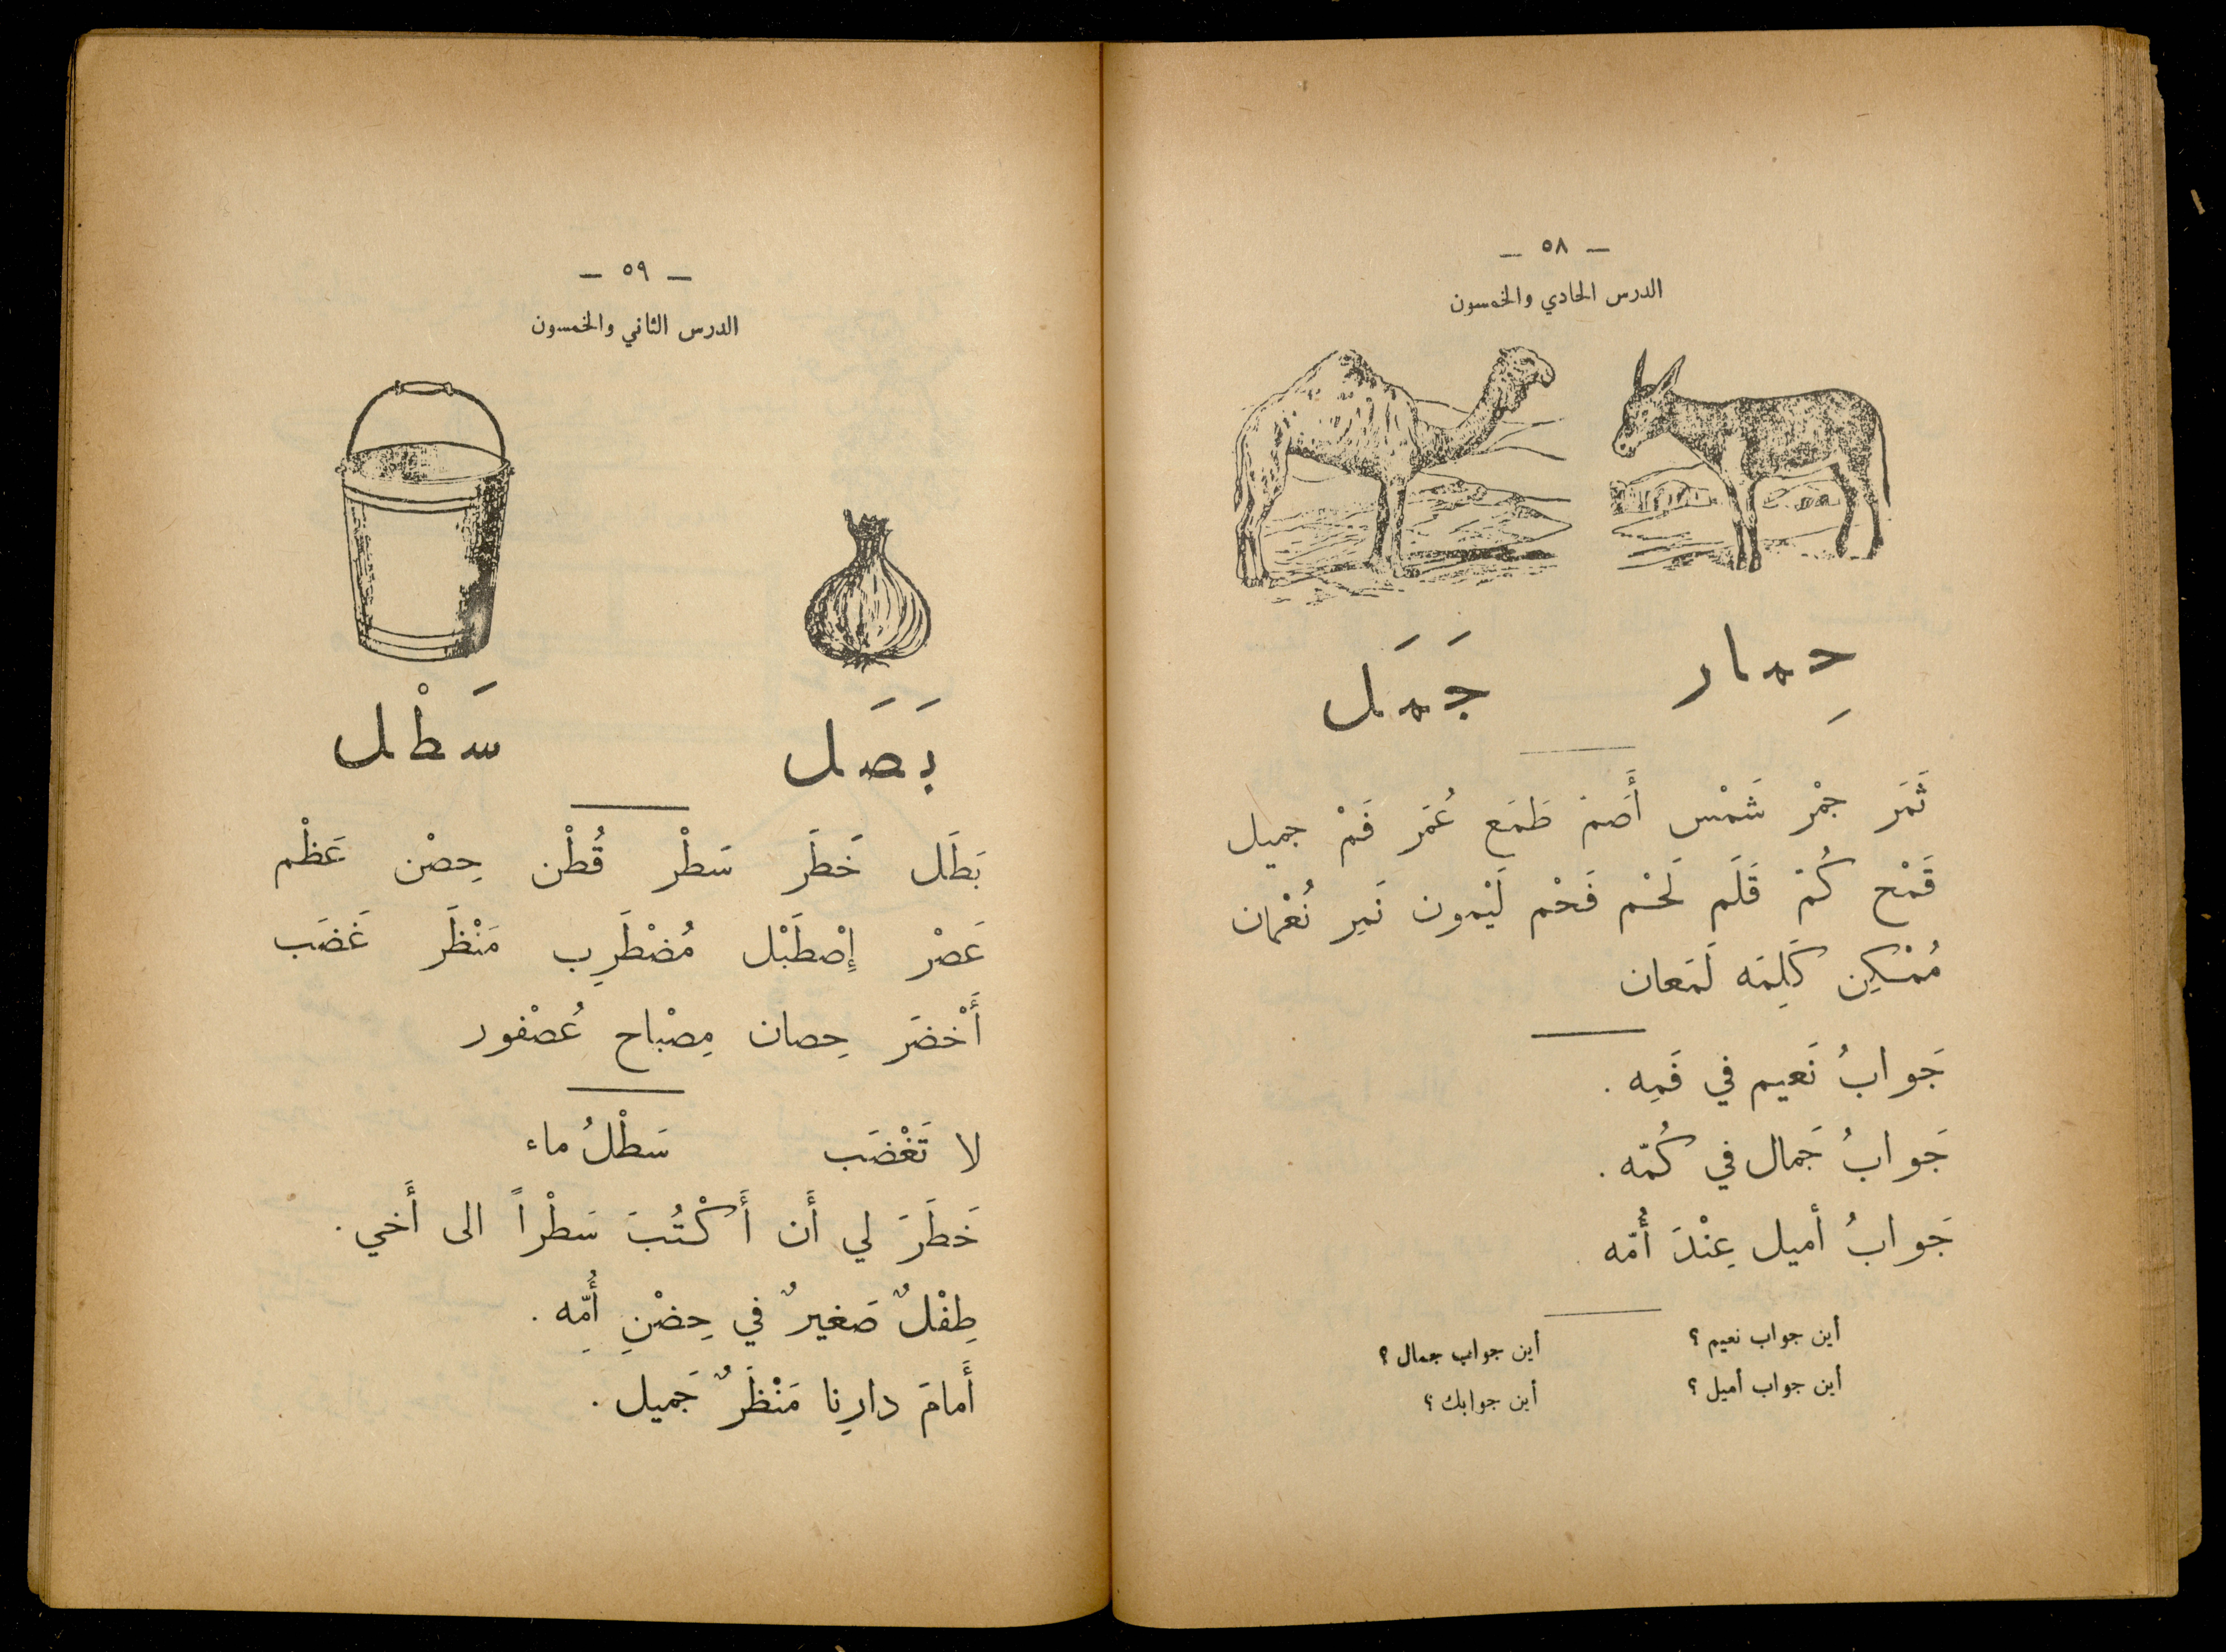 — ٥٨ —
الدرس الحادي والخمسون
حِمار جَمَل
ثَمَر جمْر شَمْس أَصَمّ طَمَع عُمَر فَمْ جميل
قَمْح كُمّ قَلَم لَحْم فَحْم لَيْمون نَمِر نُعْمان
مُمْكِن كَلِمَه لَمَعان
جَوابُ نَعيم في فَمِه .
جَوابُ جَمال في كُمّه .
جَوابُ أميل عِنْدَ أُمّه .
أين جواب نعيم ؟ أين جواب جمال ؟
أين جواب أميل ؟ أين جوابك ؟
— ٥٩ —
الدرس الثاني والخمسون
بَصَل سَطْل
بَطَل خَطَر سَطْر قُطْن حِصْن عَظْم
عَصْر إِصْطَبْل مُضْطَرِب مَنْظَر غَضَب
أَخْضَر حِصان مِصْباح عُصْفور
لا تَغْضَب سَطْلُ ماء
خَطَرَ لي أَن أَكْتُبَ سَطْراً الى أَخي .
طِفْلٌ صَغيرٌ في حِضْنِ أُمِّه .
أَمامَ دارِنا مَنْظَرٌ جَميل .